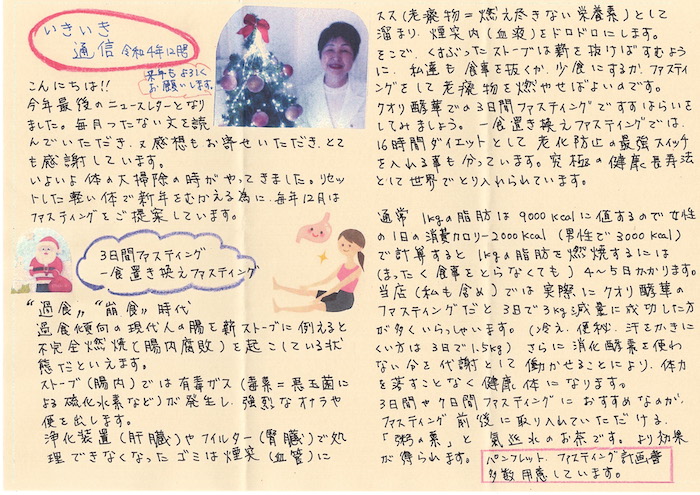 いきいき
通信 令和4年12月号
来年もよろしく
お願いします。
こんにちは!!
今年最後のニュースレターとなり
ました。毎月つたない文を読
んでいただき、又感想もお寄せいただき、とて
も感謝しています。
いよいよ体の大掃除の時がやってきました。リセッ
トした軽い体で新年をむかえる為に、毎年12月は
ファスティングをご提案しています。
3日間ファスティング
一食置き換えファスティング
“過食”“崩食”時代
過食傾向の現代人の腸を薪ストーブに例えると
不完全燃焼(腸内腐敗)を起こしている状
態だといえます。
ストーブ(腸内)では有毒ガス(毒素=悪玉菌に
よる硫化水素など)が発生し、強烈なオナラや
便を出します。
浄化装置(肝臓)やフィルター(腎臓)で処
理できなくなったゴミは煙突(血管)に
スス(老廃物=燃え尽きない栄養素)として
溜まり、煙突内(血液)をドロドロにします。
そこで、くすぶったストーブは薪を抜けばすむよう
に、私達も食事を抜くか、少食にするか、ファスティ
ングをして老廃物を燃やせばよいのです。
クオリ酵華での3日間ファスティングですすはらいを
してみましょう。一食置き換えファスティングでは、
16時間ダイエットとして老化防止の最強スイッチ
を入れる事も分っています。究極の健康長寿法
として世界でとり入れられています。
通常1kgの脂肪は9000Kcalに値するので女性
の1日の消費カロリー2000Kcal(男性で3000Kcal)
で計算すると1kgの脂肪を燃焼するには
(まったく食事をとらなくても)4〜5日かかります。
当店(私も含め)では実際にクオリ酵華の
ファスティングだと3日で3kg減量に成功した方
が多くいらっしゃいます。(冷え、便秘、汗をかきに
くい方は3日で1.5kg) さらに消化酵素を使わ
ない分を代謝として働かせることにより、体力
を落すことなく健康体になります。
3日間や7日間ファスティングにおすすめなのが、
ファスティング前後に取り入れていただける、
「粥の素」と氣巡水のお茶です。より効果
が得られます。
パンフレット、ファスティング計画書
多数用意しています。